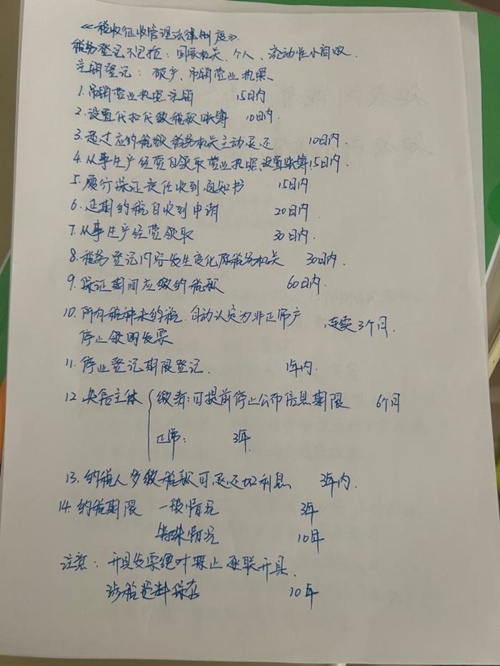 《税收征收管理法律制度》
税务登记不包括：国家机关、个人、流动性小商贩
注销登记：破产、吊销营业执照
1.吊销营业执照注销 15日内
2.设置代扣代缴税款账簿 10日内
3.超过应纳税额税务机关主动退还 10日内
4.从事生产经营自领取营业执照,设置账簿15日内
5.履行保证责任收到通知书 15日内
6.延期纳税自收到申请 20日内
7.从事生产经营领取 30日内
8.税务登记内容发生变化原税务机关 30日内
9.保证期间应缴纳税款 60日内
10.所有税种未纳税,自动认定为非正常户 连续3个月
停止领用发票
11.停业登记期限登记 1年内
12.失信主体 缴者:可提前停止公布信息期限 6个月
正常: 3年
13.纳税人多缴税款可退还加利息 3年内.
14.纳税期限 一般情况 3年
特殊情况 10年
注意：开具发票 禁止 联开具.
涉税资料保存 10年